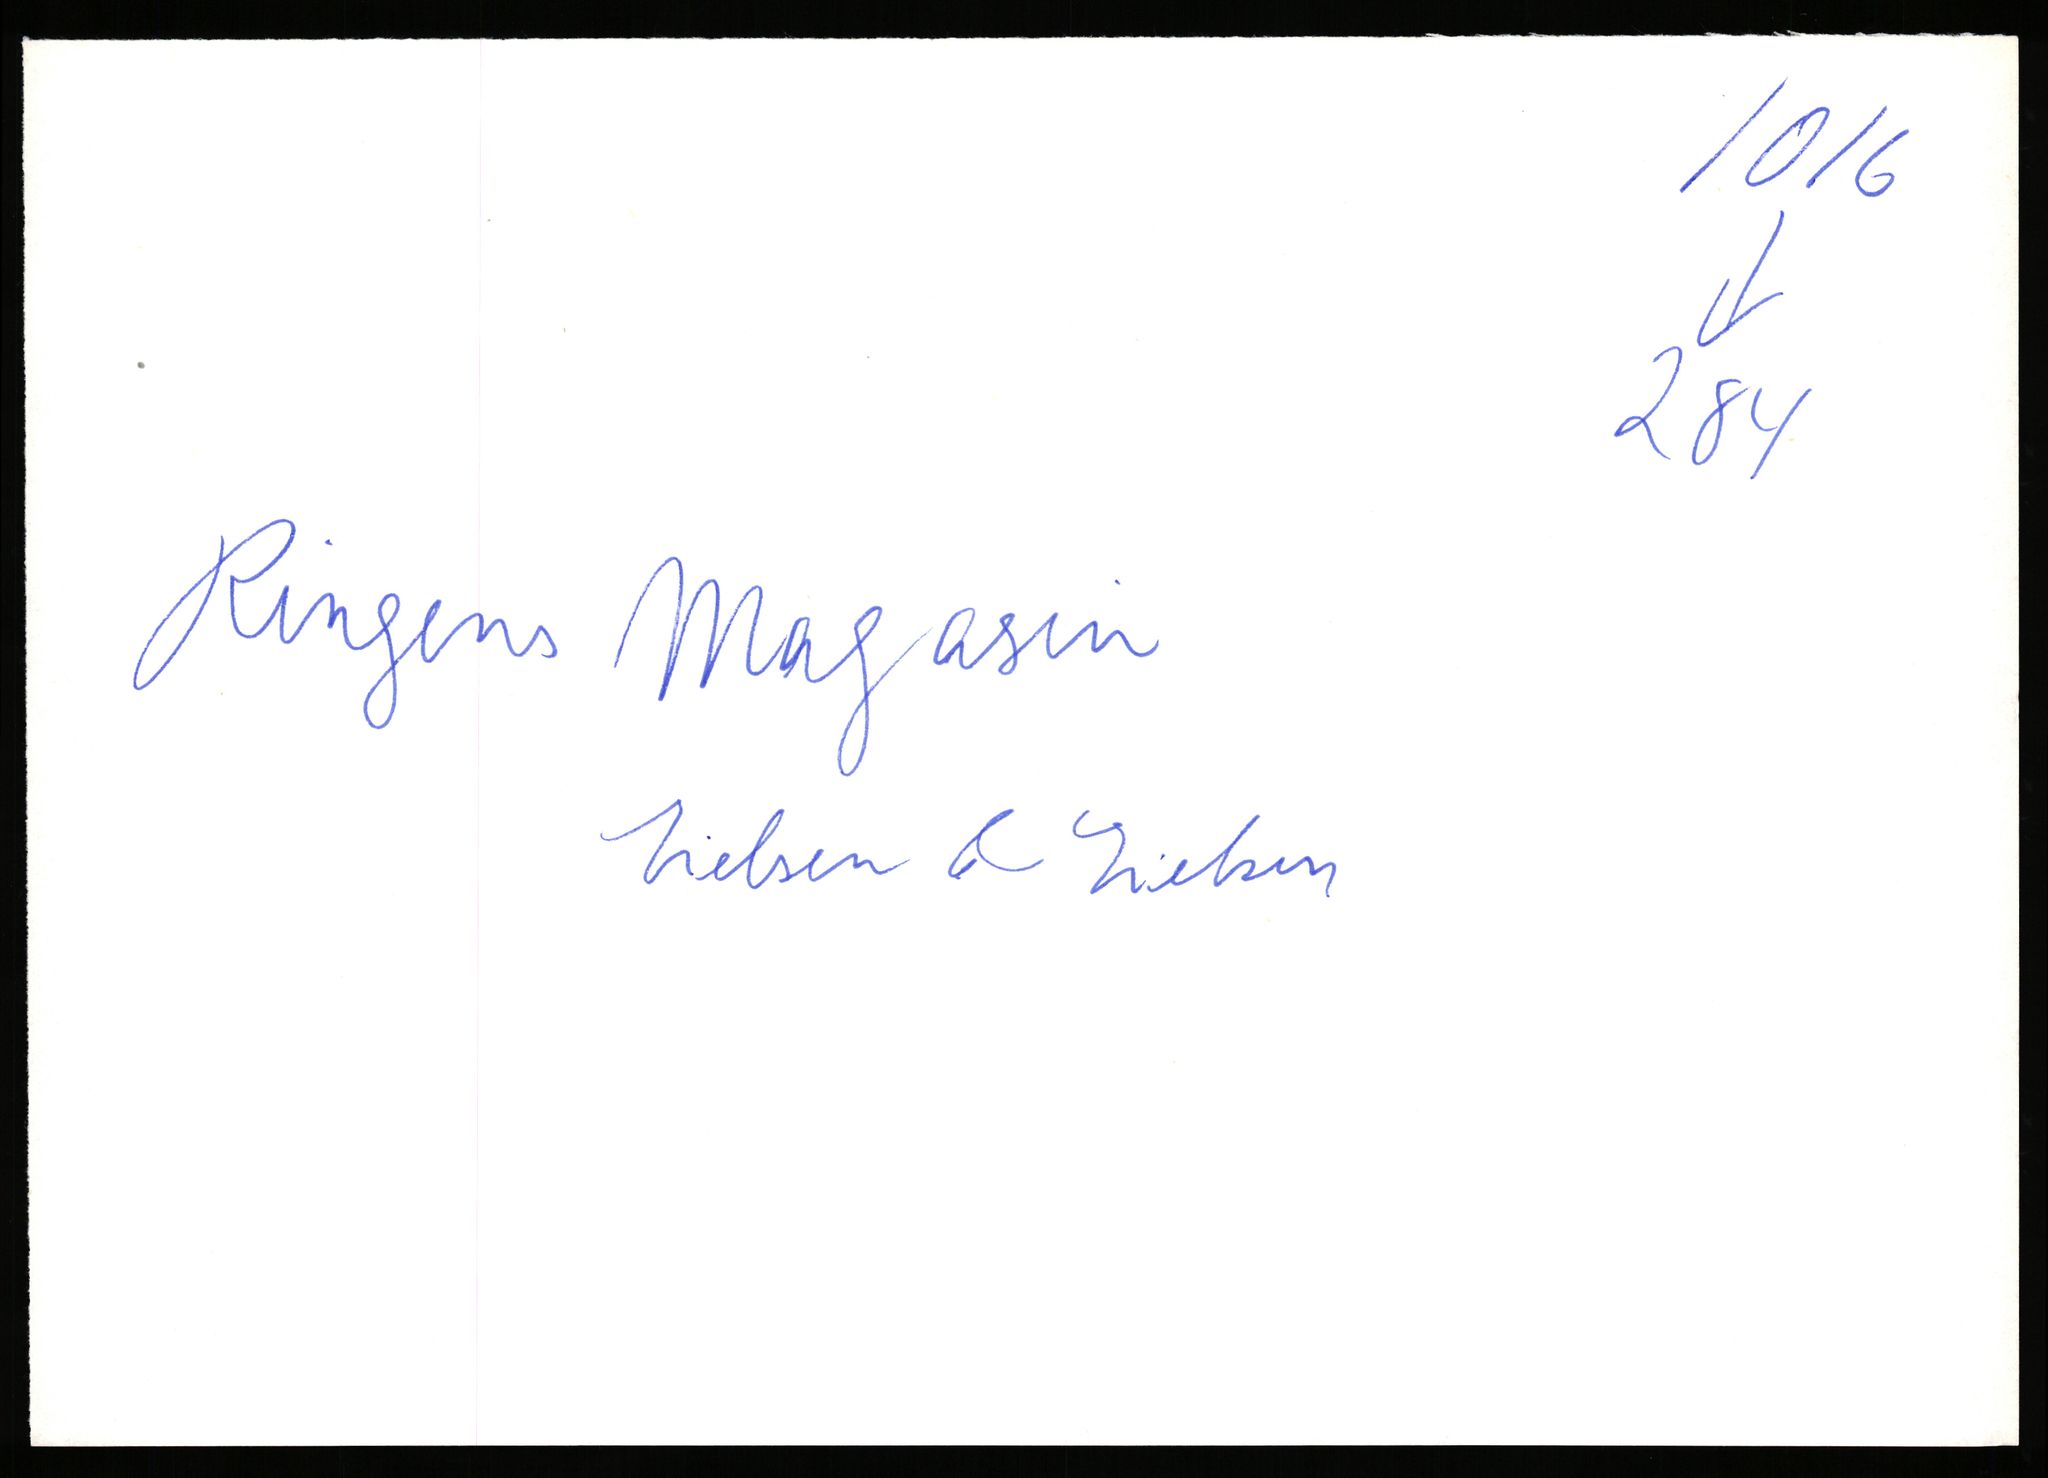 1016
↓
284
Ringens Magasin
Nielsen & Nielsen